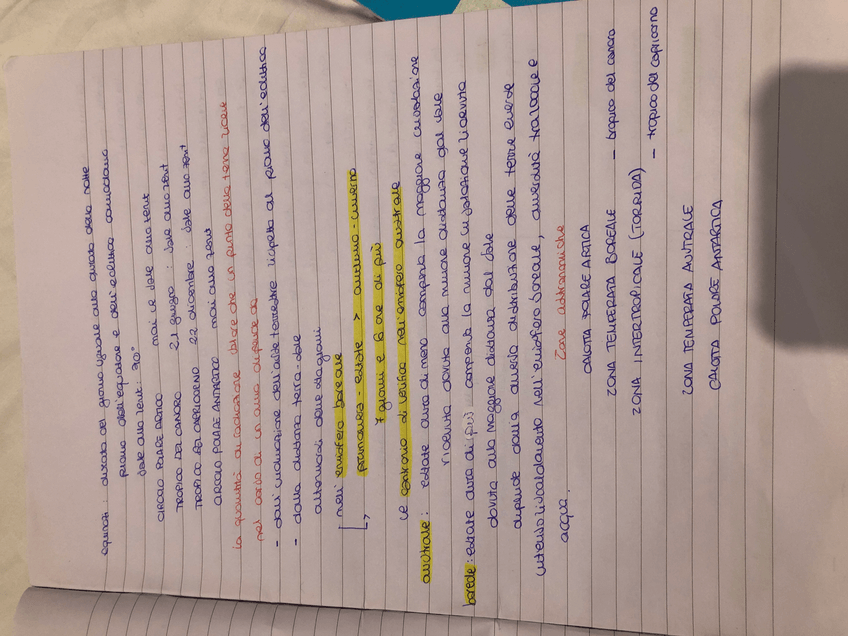 equinozi: durata del giorno uguale alla durata della notte
piano dell'equatore e dell'eclittica coincidono
sole allo zenit: 90°
CIRCOLO POLARE ARTICO mai il sole allo zenit
TROPICO DEL CANCRO 21 giugno: sole allo zenit
TROPICO DEL CAPRICORNO 22 dicembre: sole allo zenit
CIRCOLO POLARE ANTARTICO mai allo zenit
la quantità di radiazione solare che un punto della terra riceve
nel corso di un anno dipende da
- dall'inclinazione dell'asse terrestre rispetto al piano dell'eclittica
- dalla distanza terra-sole
alternarsi delle stagioni
nell'emisfero boreale
primavera-estate > autunno-inverno
7 giorni e 6 ore di più
il contrario si verifica nell'emisfero australe
australe: estate dura di meno comporta la maggiore insolazione
ricevuta dovuta alla minore distanza dal sole
boreale: estate dura di più comporta la minore insolazione ricevuta
dovuta alla maggiore distanza dal sole
dipende dalla diversa distribuzione delle terre emerse
intenso riscaldamento nell'emisfero boreale, diversità tra rocce e
acqua.
Zone astronomiche
CALOTTA POLARE ARTICA
ZONA TEMPERATA BOREALE - tropico del cancro
ZONA INTERTROPICALE (TORRIDA)
- tropico del capricorno
ZONA TEMPERATA AUSTRALE
CALOTTA POLARE ANTARTICA